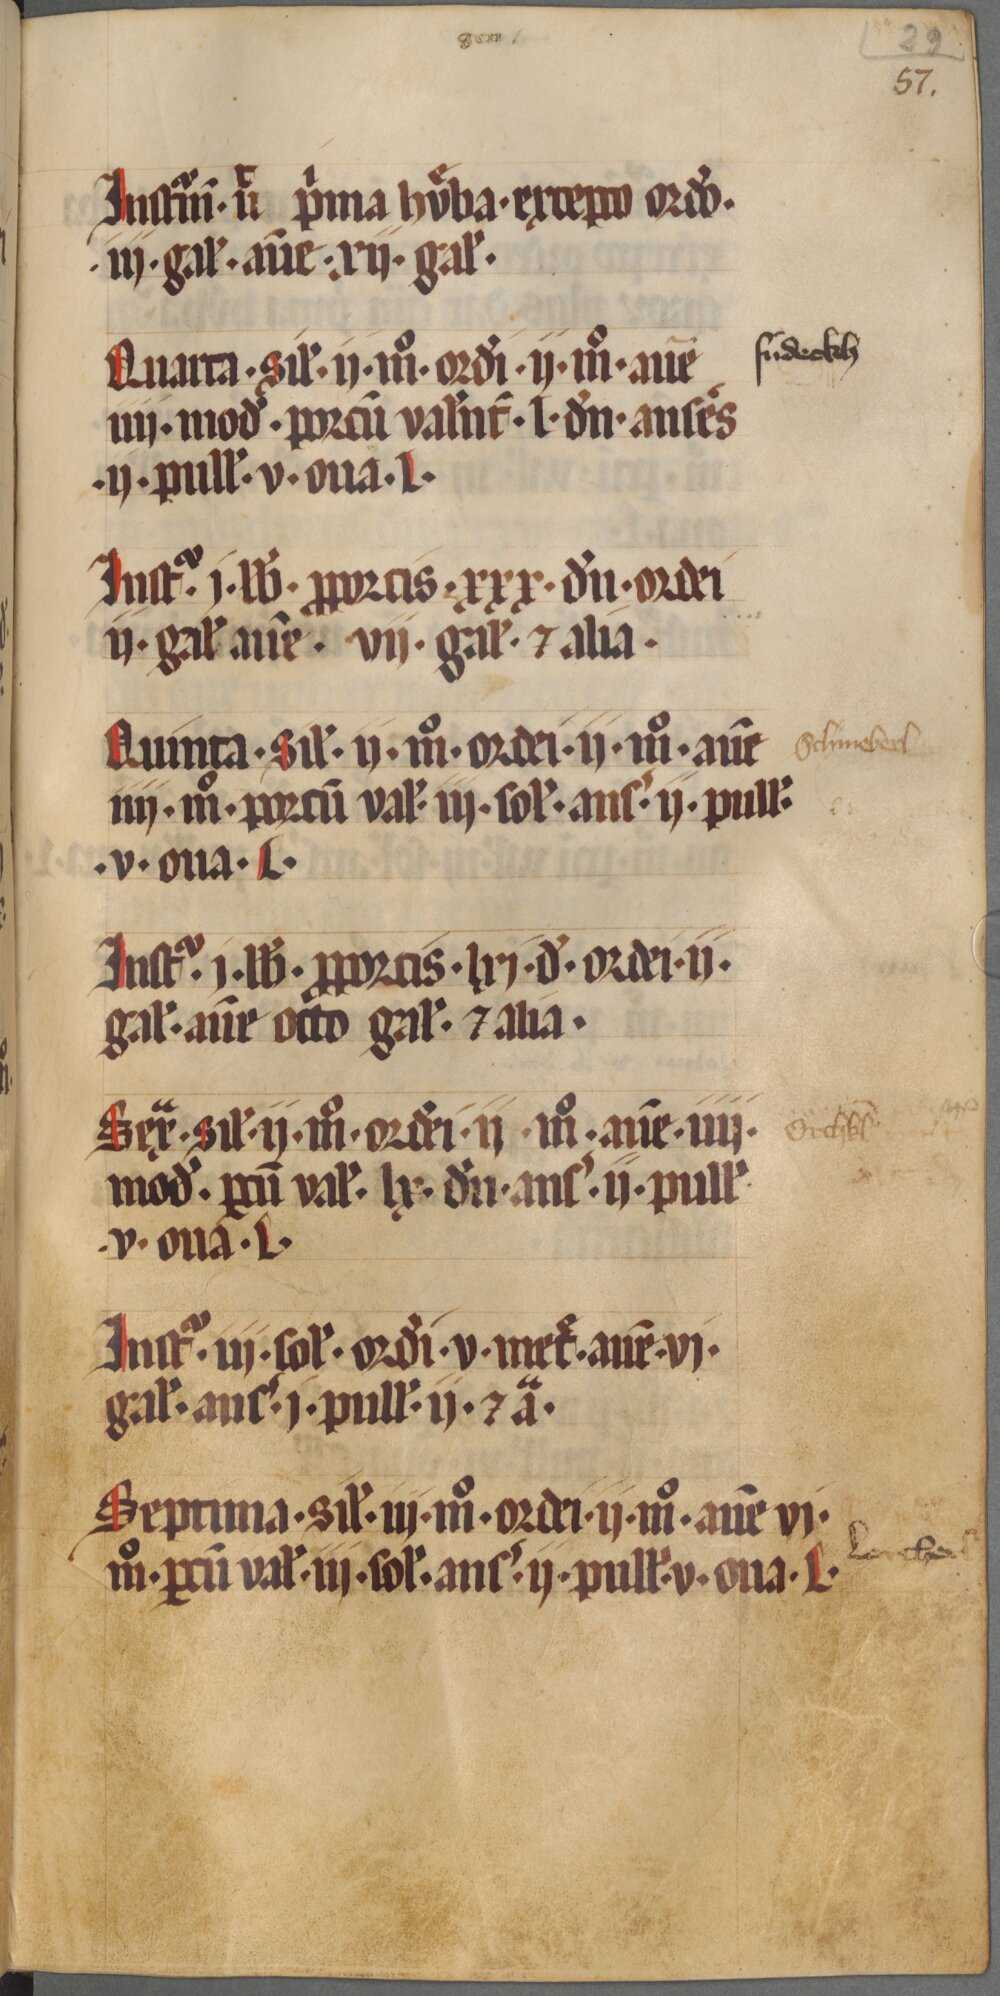 29
57.
Instiᵃiii · ut p̍ma hůba · excepto ordeo ·
· iij · gal̕ · aūe · xij · gal̕ ·
Quarta · Sil̕ · ij · m̊ · ord̕i · ij · m̊ · aūe
iiij · mod̕ · porcū val̕nt̄ · l · d̕n · anse̕s
· ij · pull̕ · v · oua · L ·
sudeckh
Instᵃ · j · lb̕ · ꝓporcis · xxx · d̕n · ordei
ij · gal̕ aūe · vij · gal̕ · ⁊ alia ·
Quinta · Sil̕ · ij · m̊ · ordei · ij · m̊ · aūe
Schneberl
iiij · m̊ · porcū val̕ iij · sol̕ · ans̕ · ij · pull̕ ·
· v · oua · L ·
Instᵃ · j · lb̕ · ꝓporcis · lxj · d̕ · ordei · ij ·
gal̕ · aūe octo gal̕ · ⁊ alia ·
Sexᵃ · sil̕ · ij · m̊ · ord̕ei · ij · m̊ · aūe · iiij ·
mod̕ · pcū val̕ · lx · d̕n · ans̕ · ij · pull̕
· v · oua · L ·
Instᵃ · iij · sol̕ · ord̕i · v · met̕ · aūe · vj ·
gal̕ · ans̕ · j · pull̕ · ij · ⁊ aᵃ ·
Septima · Sil̕ · iij · m̊ · ordei · ij · m̊ · aūe vj ·
m̊ · pcū val̕ · iij · sol̕ · ans̕ · ij · pull̕ · v · oua · L ·